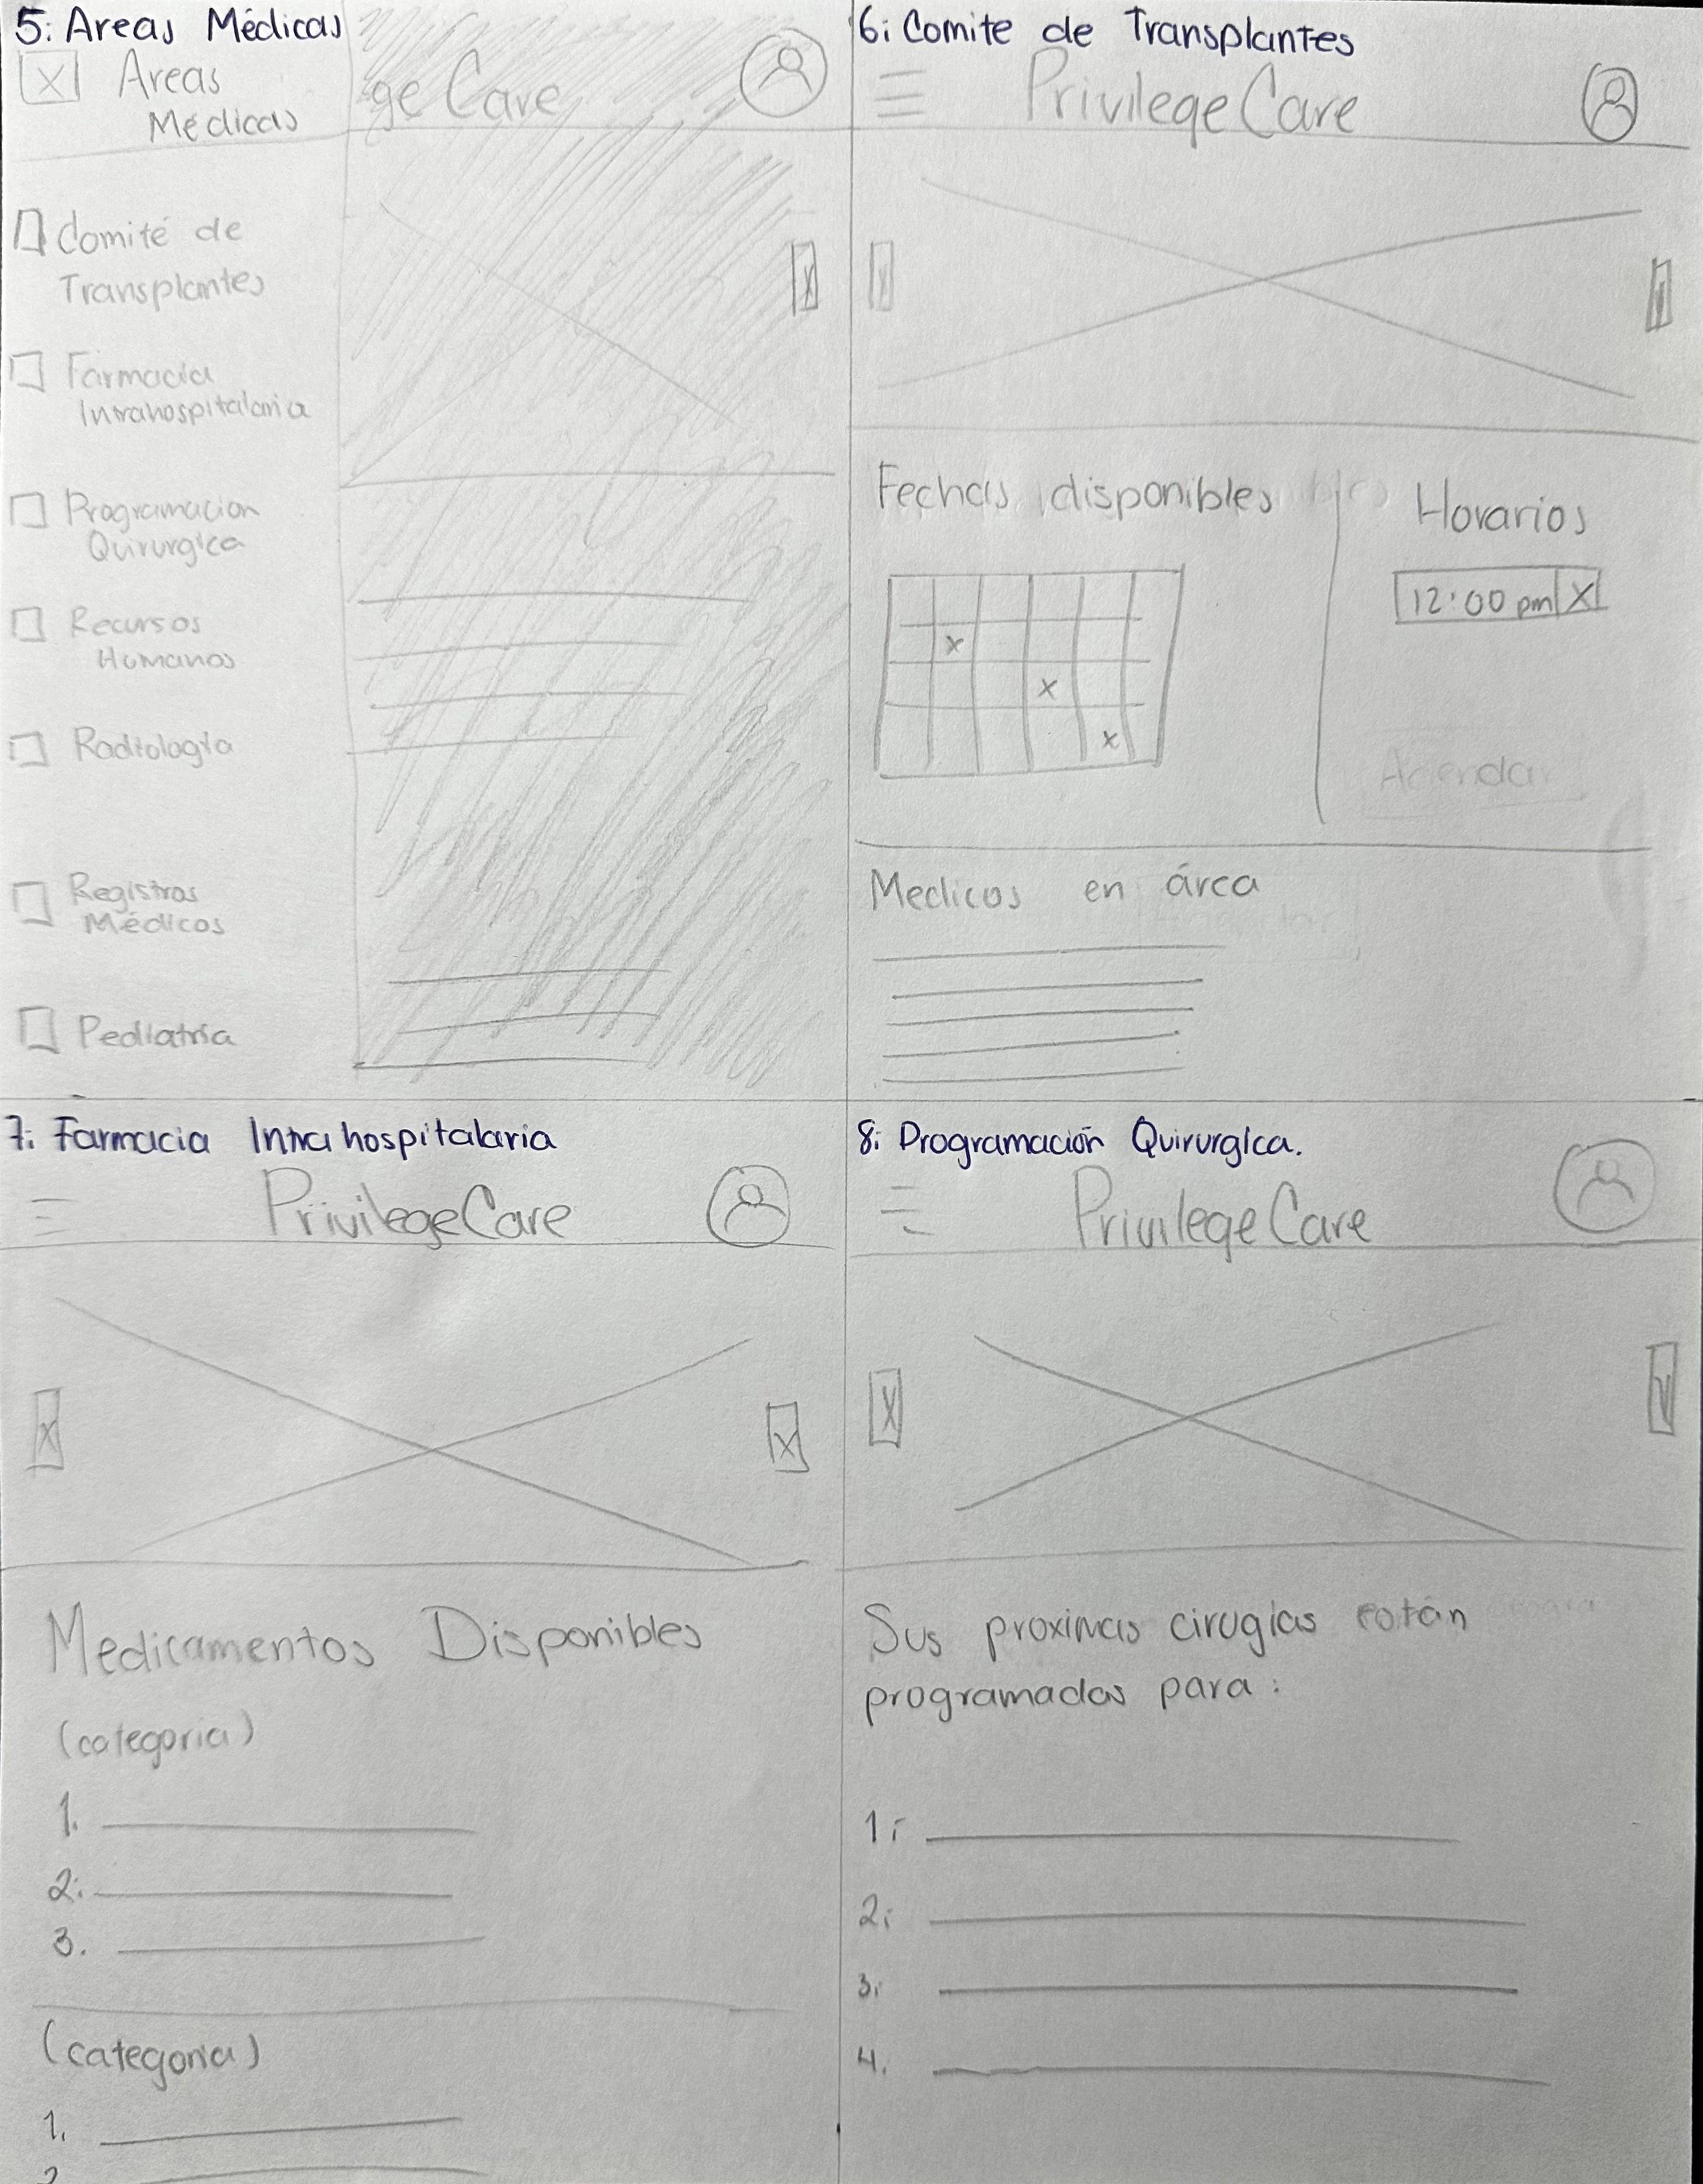 5: Areas Médicas
X Areas
Médicas
ge Care
Comité de
Transplantes
Farmacia
Intrahospitalaria
Programacion
Quirurgica
Recursos
Humanos
Radiología
Registros
Médicos
Pediatría
6: Comite de Transplantes
PrivilegeCare
Fechas disponibles
Horarios
12:00 pm X
x
x
x
Agendar
Medicos en área
7: Farmacia Intrahospitalaria
PrivilegeCare
X
X
Medicamentos Disponibles
(categoria)
1.
2.
3.
(categoria)
1.
2
8: Programación Quirurgica.
PrivilegeCare
X
Sus proximas cirugias están
programadas para:
1:
2:
3:
4.